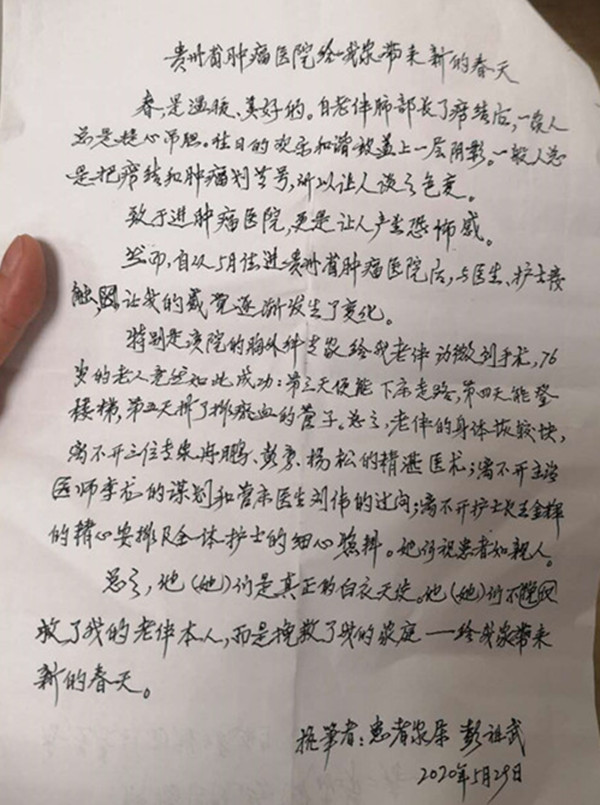 贵州省肿瘤医院给我家带来新的春天
春,是温暖、美好的。自老伴肺部长了痞结后,一家人
总是提心吊胆。往日的欢乐和谐被盖上一层阴影。一般人总
是把痞结和肿瘤划等号,所以让人谈之色变。
致于进肿瘤医院,更是让人产生恐怖感。
然而,自从5月住进贵州省肿瘤医院后,与医生、护士接
触,让我的感觉逐渐发生了变化。
特别是该院的胸外科专家给我老伴动微创手术,76
岁的老人竟然如此成功:第三天便能下床走路,第四天能登
楼梯,第五天拆了排瘀血的管子。总之,老伴的身体恢较快,
离不开三位专家冉鹏、彭勇、杨松的精湛医术;离不开主治
医师李龙的谋划和管床医生刘伟的过问;离不开护士长王金辉
的精心安排及全体护士的细心照料。她们视患者如亲人。
总之,他(她)们是真正的白衣天使。他(她)们不仅
救了我的老伴本人,而是挽救了我的家庭——给我家带来
新的春天。
执笔者:患者家属 彭祖武
2020年5月29日